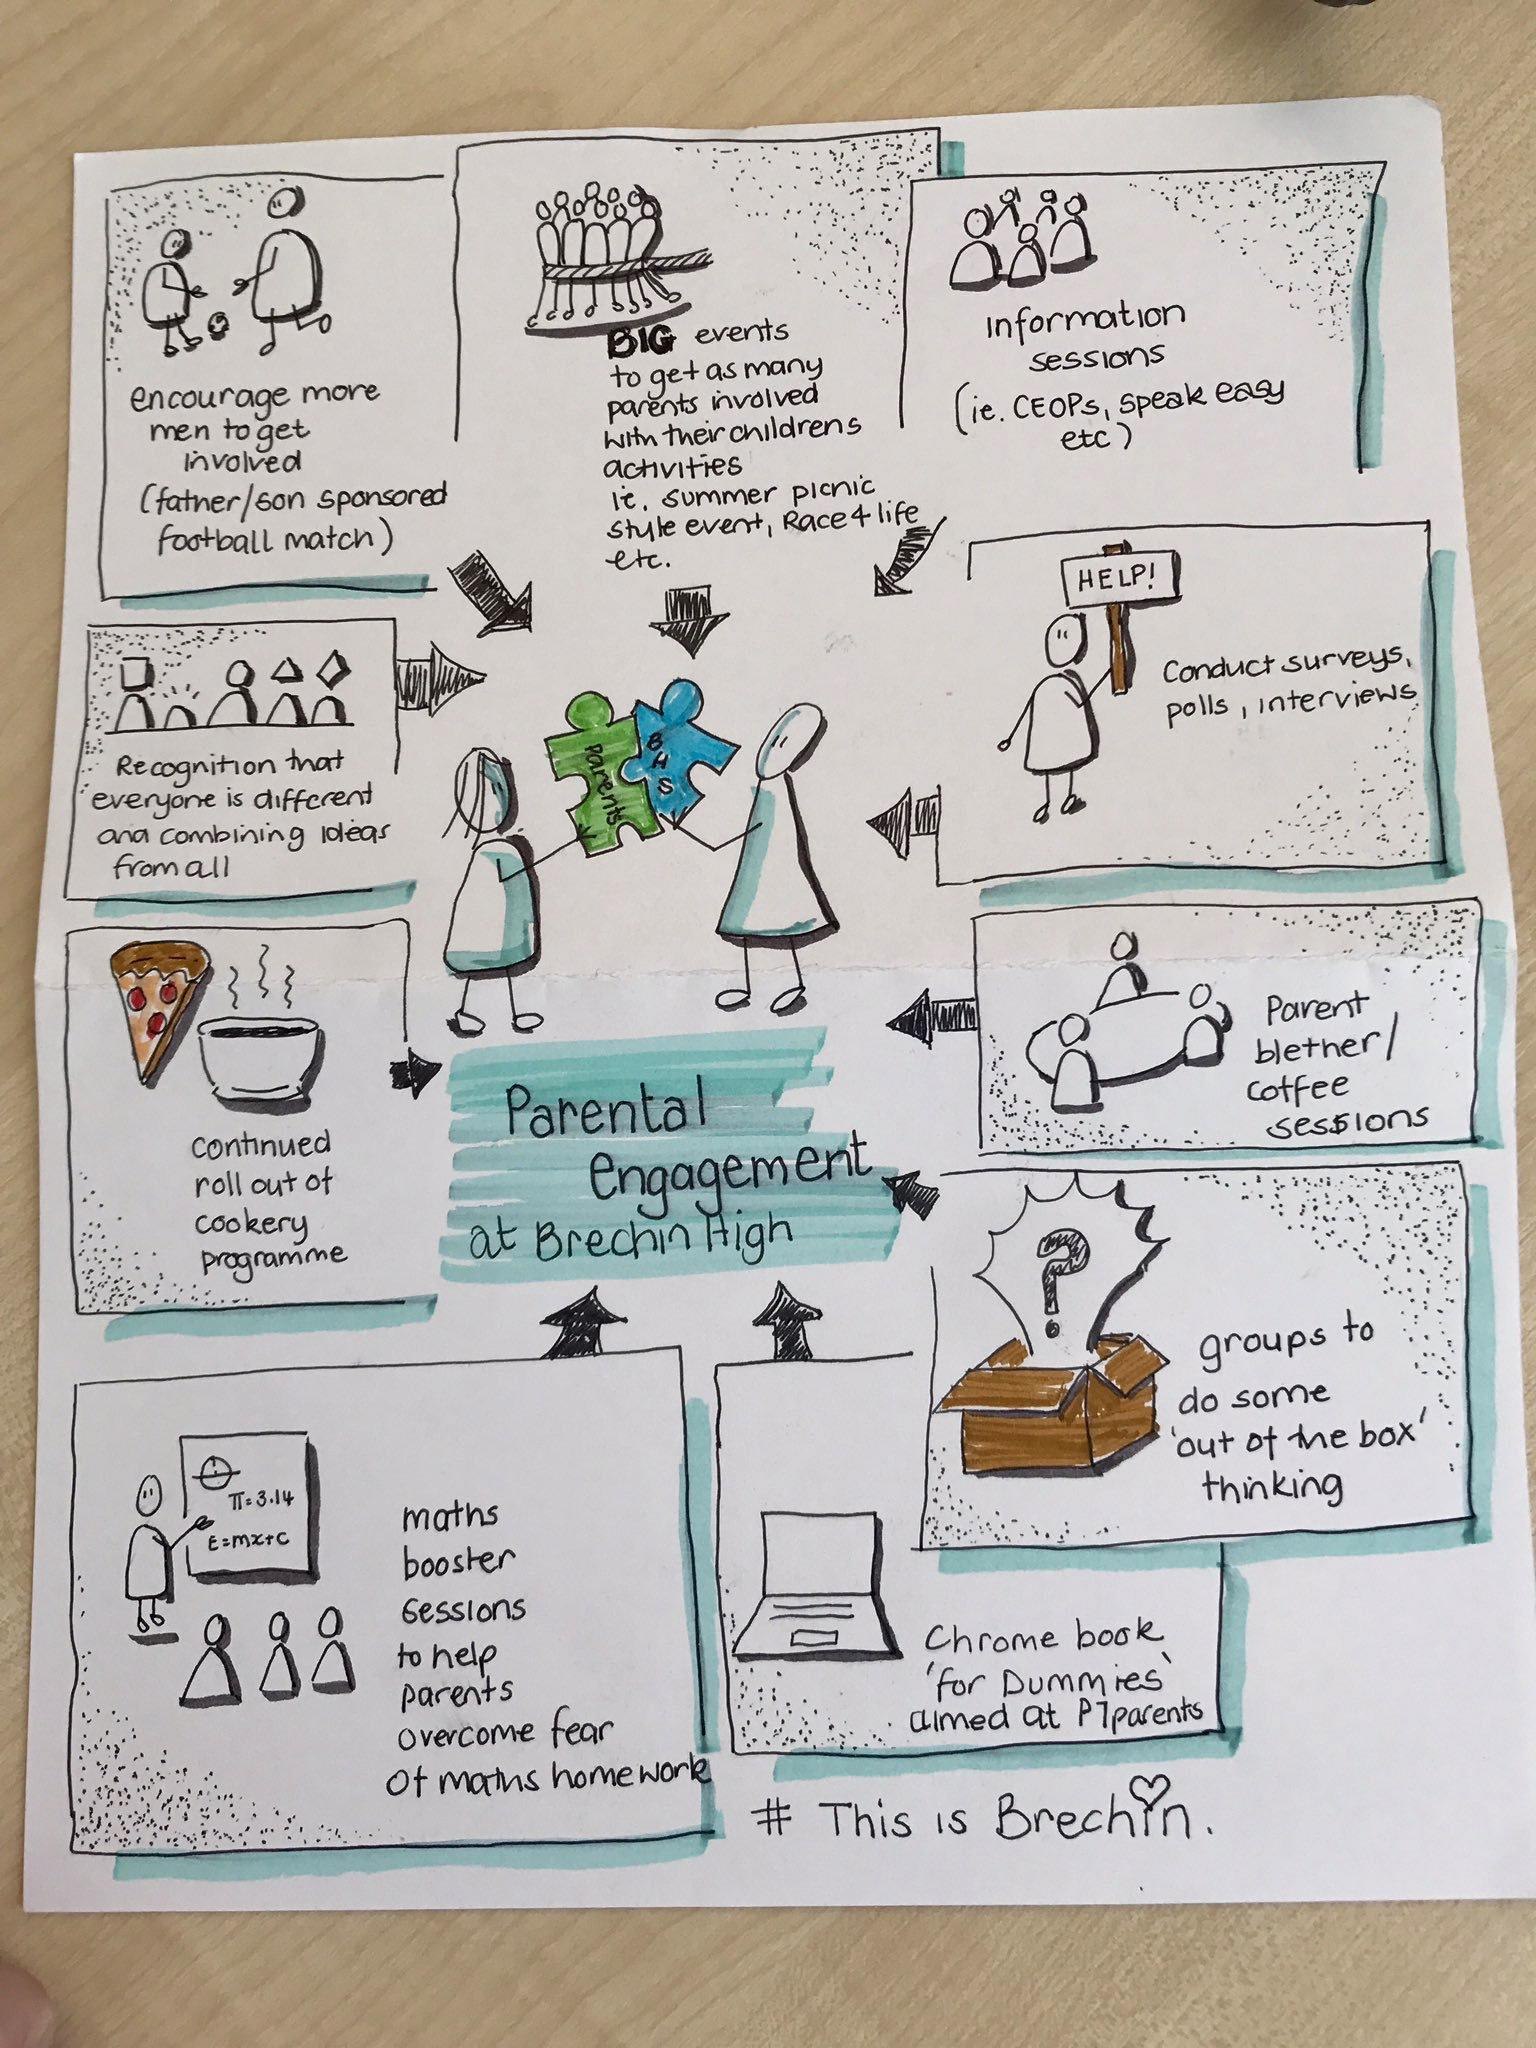 encourage more
men to get
involved
(father/son sponsored
football match)
BIG events
to get as many
parents involved
with their childrens
activities
ie. summer picnic
style event, Race 4 life
etc.
information
sessions
(ie. CEOPs, speak easy
etc)
Recognition that
everyone is different
and combining ideas
from all
Parents
BHS
HELP!
Conduct surveys,
polls, interviews
continued
roll out of
cookery
programme
Parental
Engagement
at Brechin High
Parent
blether/
coffee
sessions
?
groups to
do some
'out of the box'
thinking
π=3.14
E=mx+c
maths
booster
sessions
to help
parents
overcome fear
of maths homework
Chrome book
'for Dummies'
aimed at P7 parents
# This is Brechin.